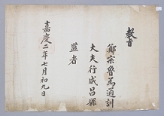 教旨
鄭梁魯爲通訓
大夫行咸昌縣
監者
嘉慶二年七月初九日